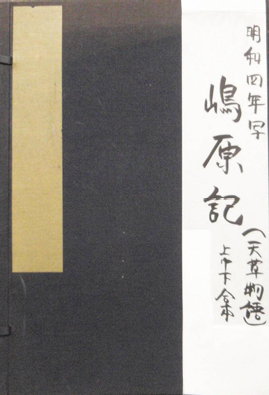 明和四年写
嶋原記
(天草物語)
上中下合本